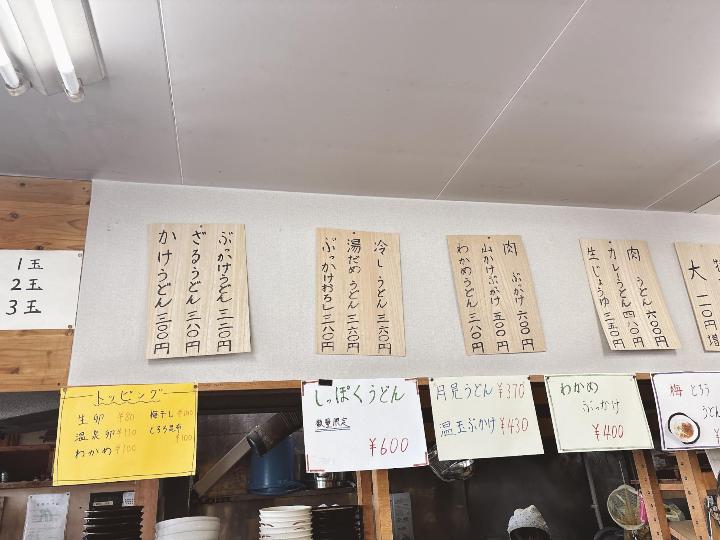 1玉
2玉
3玉
ぶっかけうどん 三二〇円
ざるうどん 三八〇円
かけうどん 三〇〇円
冷しうどん 三六〇円
湯だめうどん 三六〇円
ぶっかけおろし 三八〇円
肉ぶっかけ 六〇〇円
山かけぶっかけ 五〇〇円
わかめうどん 三八〇円
肉うどん 六〇〇円
カレーうどん 四八〇円
生じょうゆ 三五〇円
大
一一〇円増
トッピング
生卵 ¥80
温泉卵 ¥110
わかめ ¥100
梅干し ¥100
とろろ昆布
¥100
しっぽくうどん
数量限定
¥600
月見うどん ¥370
温玉ぶっかけ ¥430
わかめ
ぶっかけ
¥400
梅とろろ
うどん
¥